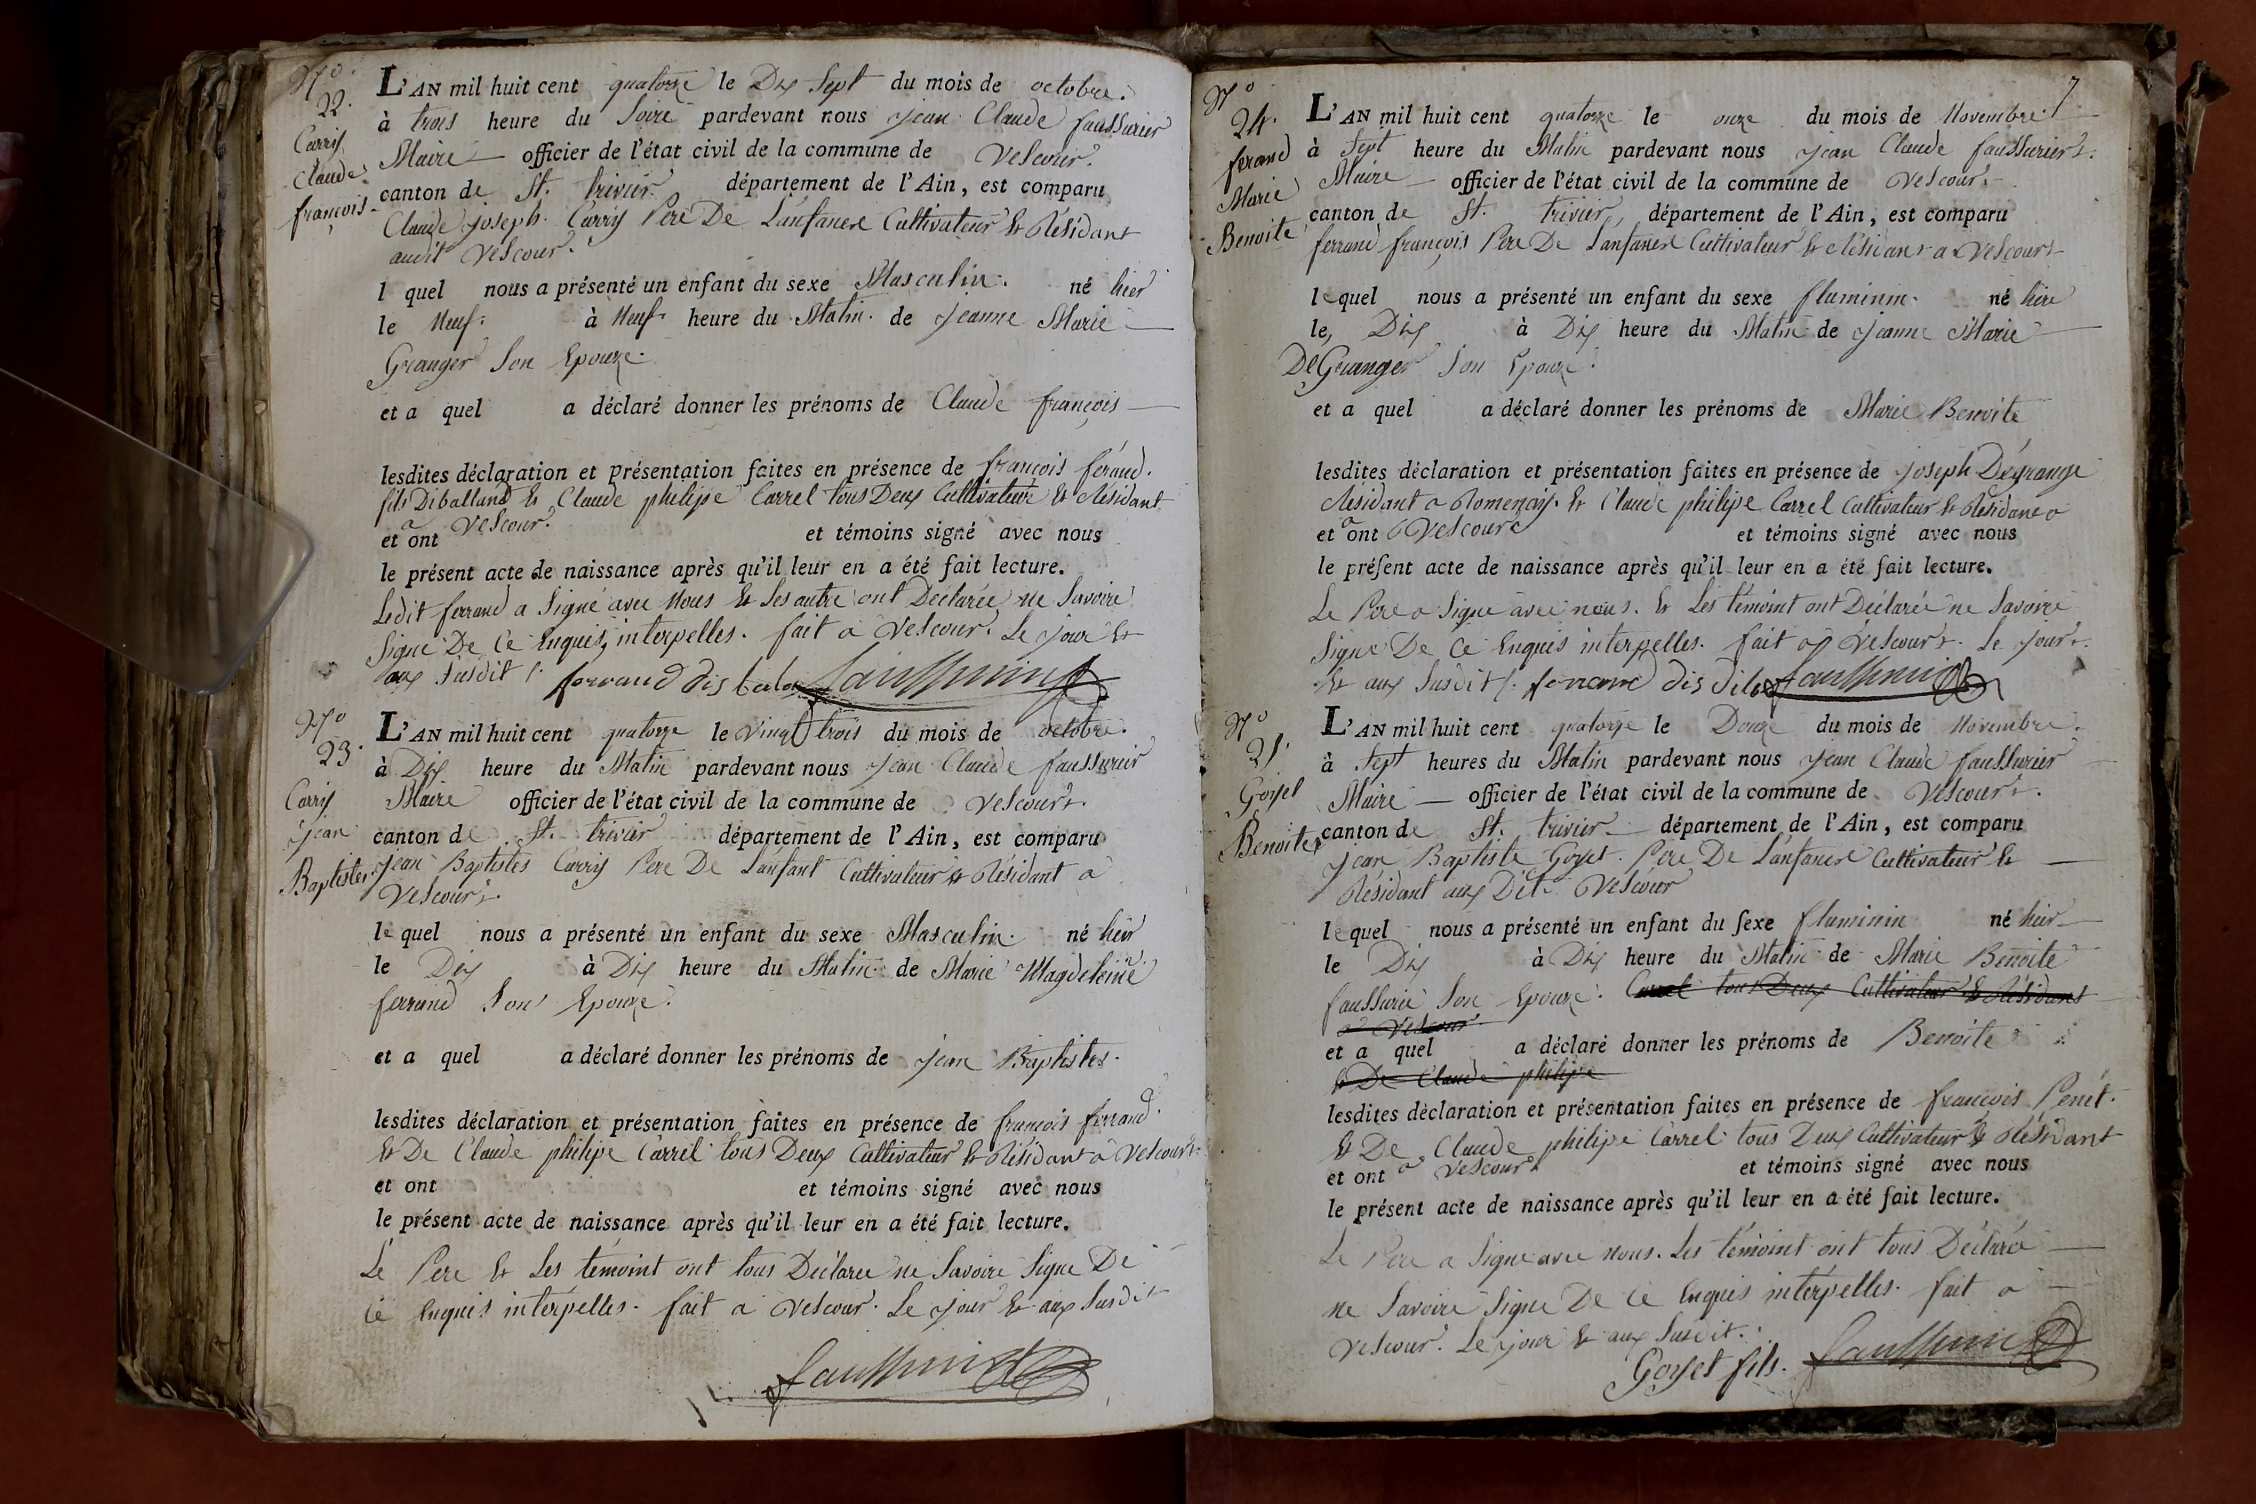 N.o
22.
Carry
Claude
françois
L'AN mil huit cent quatorze le Dix Sept du mois de octobre.
à trois heure du Soire pardevant nous jean Claude faussurier
Maire officier de l'état civil de la commune de Vescour.
canton de St. trivier. département de l'Ain, est comparu
Claude joseph. Carry Pere De L'anfanct Cultivateur & Résidant
audit Vescour.
l quel nous a présenté un enfant du sexe Masculin. né hier
le Neuf. à Neuf heure du Matin. de jeanne Marie
Granger Son Epouze.
et a quel a déclaré donner les prénoms de Claude françois
lesdites déclaration et présentation faites en présence de françois féraud.
fils Diballand & Claude philipe Carrel tous Deux Cultivateur & Résidant
et ont a Vescour. et témoins signé avec nous
le présent acte de naissance après qu'il leur en a été fait lecture.
Ledit ferrand a Signé avec Nous & Ses autre ont Declarée ne Savoire
Signe De Ce Enquis, interpelles. fait a Vescour. Le jour &
aux Susdit. ferrand dis faussurier
N.o
23.
Carry
jean
Baptistes
L'AN mil huit cent quatorze le vingt trois du mois de octobre.
à Dix heure du Matin pardevant nous jean Claude faussurier
Maire officier de l'état civil de la commune de Vescour.
canton de St. trivier département de l'Ain, est comparu
jean Baptistes Carry Pere De L'anfant Cultivateur & Résidant a
Vescour.
le quel nous a présenté un enfant du sexe Masculin. né hier
le Dix à Dix heure du Matin de Marie Magdeleine
ferrand Son Epouze.
et a quel a déclaré donner les prénoms de jean Baptistes.
lesdites déclaration et présentation faites en présence de françois ferrand.
& De Claude philipe Carrel tous Deux Cultivateur & Résidant a Vescour.
et ont et témoins signé avec nous
le présent acte de naissance après qu'il leur en a été fait lecture.
Le Pere & Les temoint ont tous Déclarée ne Savoire Signe De
Ce Enquis interpelles. fait a Vescour. Le jour & aux Susdit
faussurier
7
N.o
24.
ferand
Marie
Benoite
L'AN mil huit cent quatorze le onze du mois de Novembre.
à Sept heure du Matin pardevant nous jean Claude faussurier.
Maire officier de l'état civil de la commune de Vescour.
canton de St. trivier département de l'Ain, est comparu
ferrand françois Pere De L'anfanct Cultivateur & Résidant a Vescour
le quel nous a présenté un enfant du sexe fluminin. né hire
le, Dix à Dix heure du Matin de jeanne Marie
De Granger Son Epouze.
et a quel a déclaré donner les prénoms de Marie Benoite
lesdites déclaration et présentation faites en présence de joseph Dégrange
Résidant a Romenay. & Claude philipe Carrel Cultivateur & Résidant a
et ont a Vescoure et témoins signé avec nous
le présent acte de naissance après qu'il leur en a été fait lecture.
Le Pere a Signe avec nous. & Les témoint ont Déclarée ne Savoire
Signe De Ce Enquis interpelles. fait a Vescour. Le jour.
& aux Susdit. ferrand dis faussurier
N.o
25.
Goyet
Benoite
L'AN mil huit cent quatorze le Douze du mois de Novembre.
à Sept heures du Matin pardevant nous jean Claude faussurier
Maire officier de l'état civil de la commune de Vescour.
canton de St. trivier département de l'Ain, est comparu
jean Baptiste Goyet. Pere De L'anfanct Cultivateur &
Résidant aux Dit Vescour
le quel nous a présenté un enfant du sexe fluminin né hier
le Dix à Dix heure du Matin de Marie Benoite
faussurie Son Epouze. Carrel tous Deux Cultivateur & Résidant
a Vescour
et a quel a déclaré donner les prénoms de Benoite
& De Claude philipe
lesdites déclaration et présentation faites en présence de françois Penet.
& De Claude philipe Carrel tous Deux Cultivateur & Résidant
et ont a Vescour et témoins signé avec nous
le présent acte de naissance après qu'il leur en a été fait lecture.
Le Pere a Signe avec Nous. Les témoint ont tous Déclaré
ne Savoire Signe De Ce Enquis interpelles. fait a
Vescour. Le jour & aux Susdit.
Goyet fils. faussurier